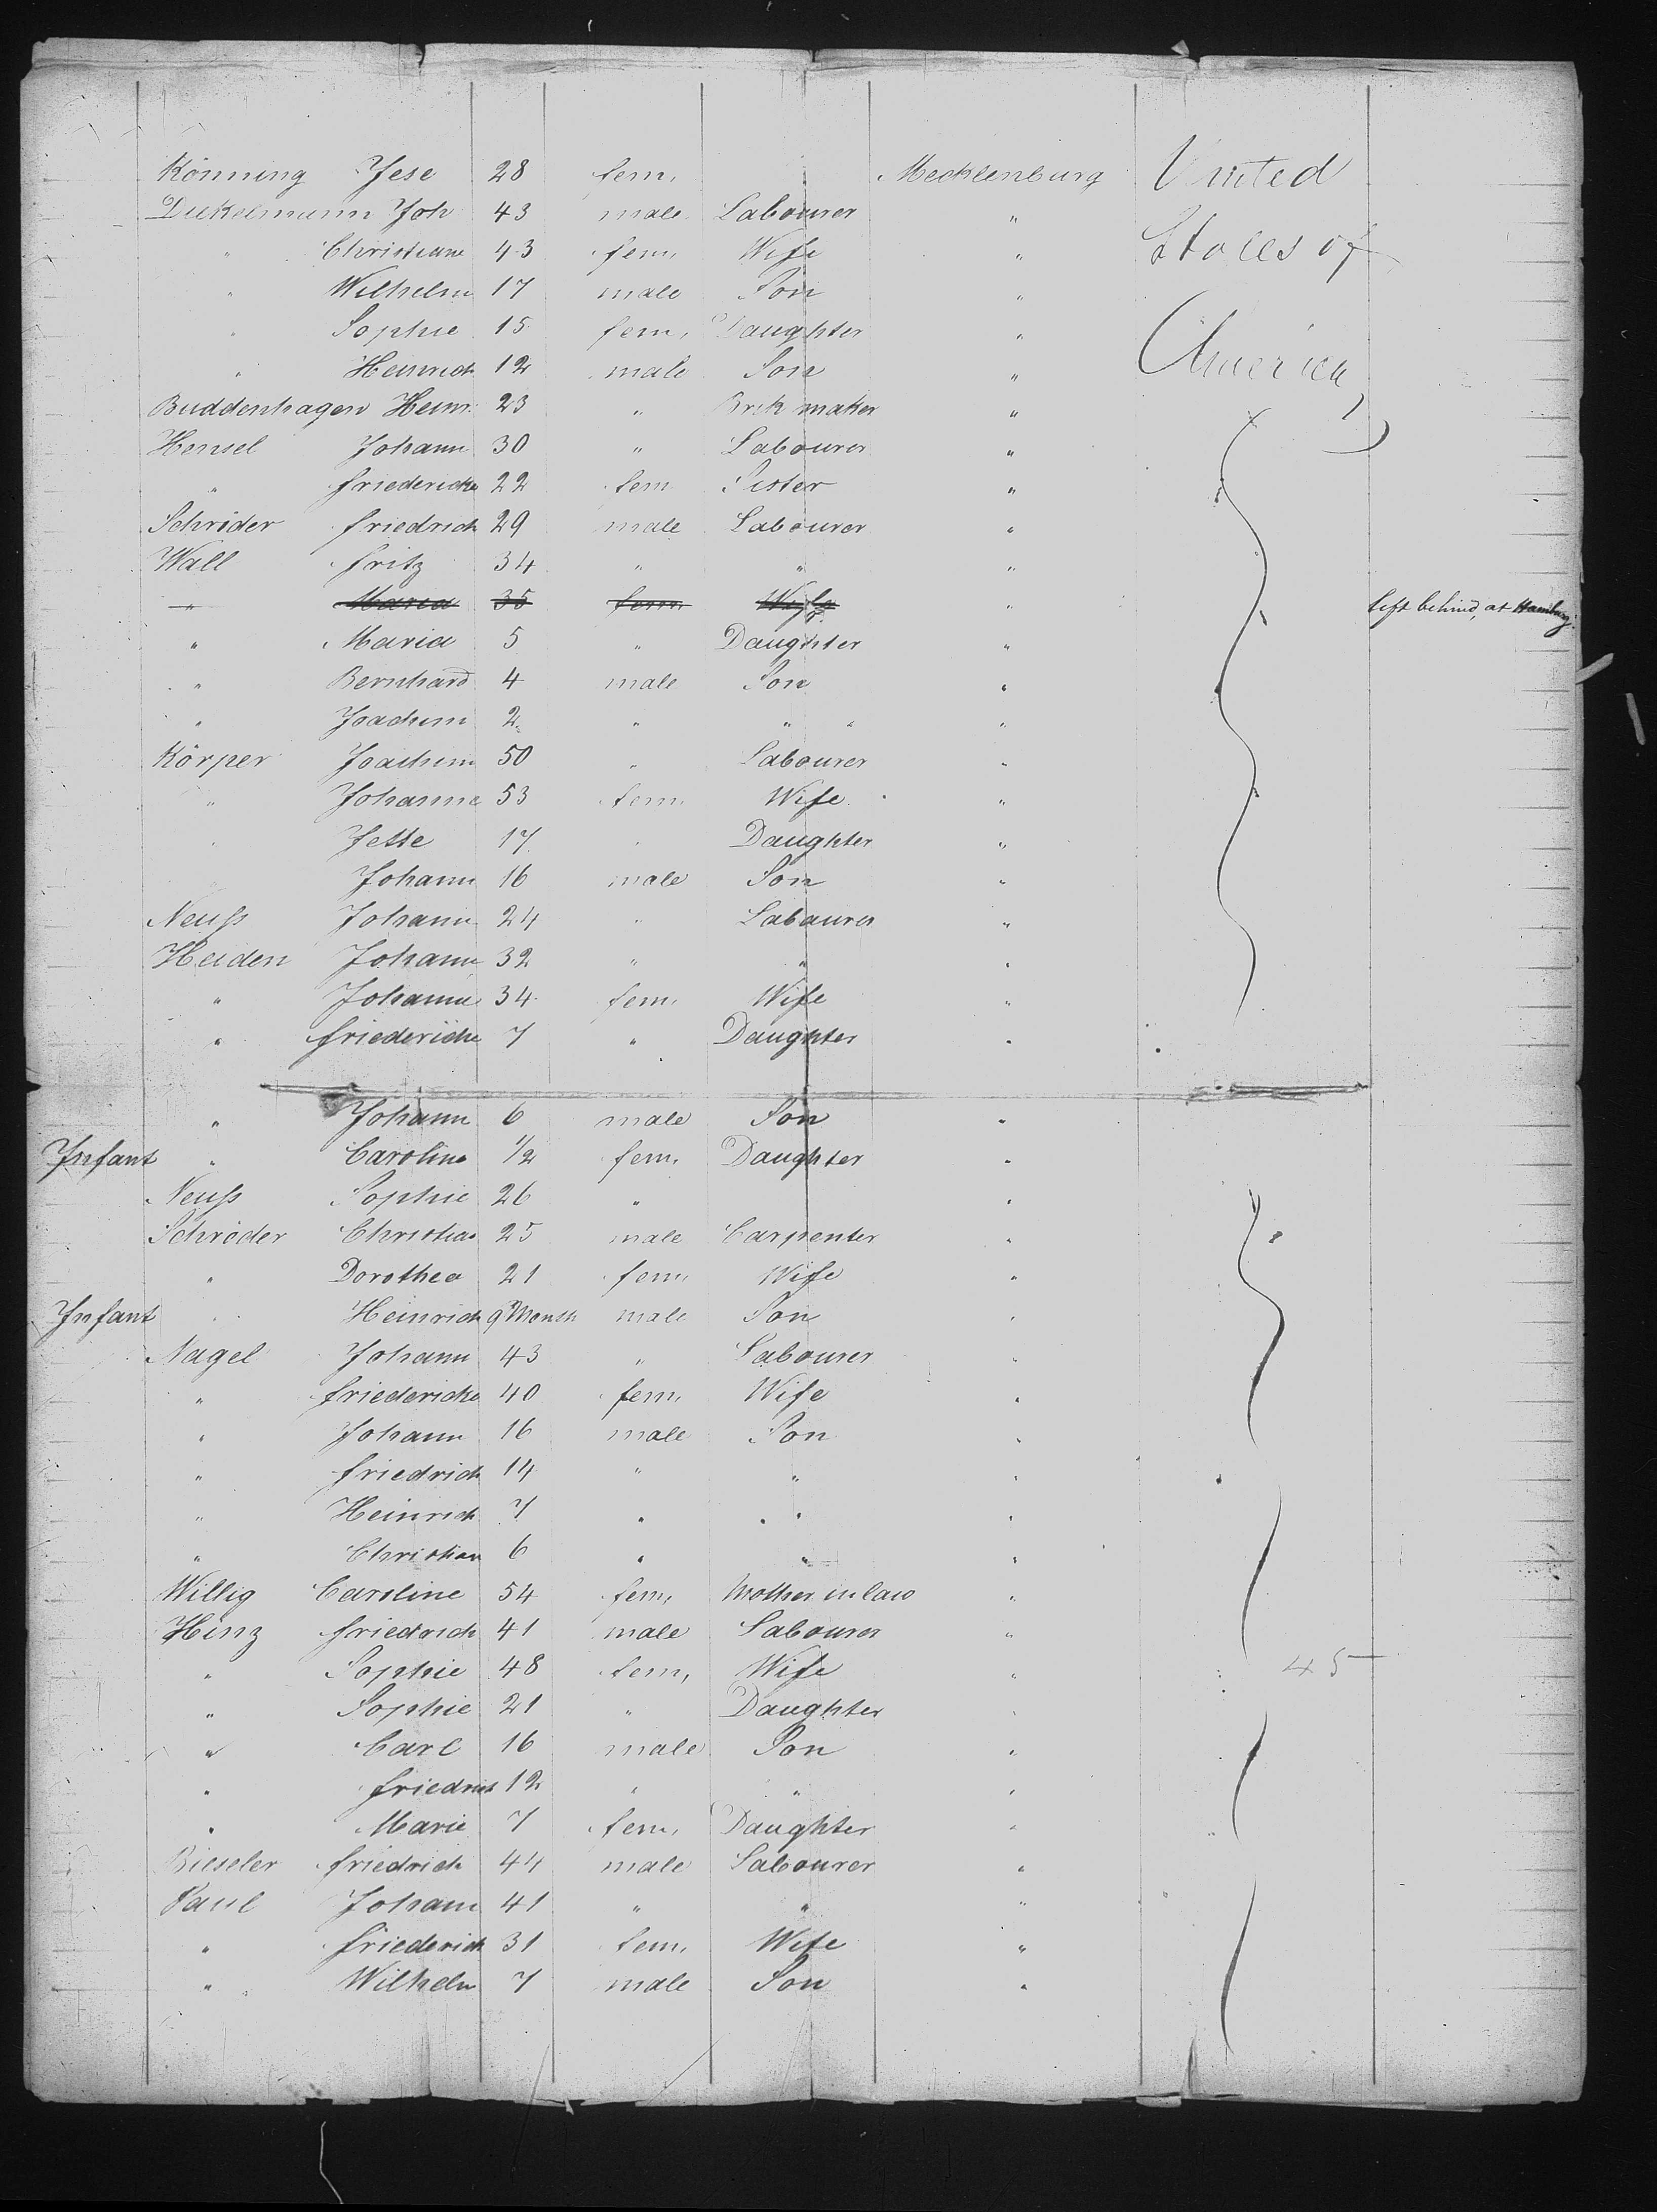 Könning Jese 28 fem. Mecklenburg United
Dukelmann Joh 43 male Labourer " States of
" Christiane 43 fem. Wife "
" Wilhelm 17 male Son "
" Sophie 15 fem. Daughter " America
" Heinrich 12 male Son "
Buddenhagen Heinr. 23 " Brik maker "
Hensel Johann 30 " Labourer "
" Friedericke 22 fem Sister "
Schröder Friedrich 29 male Labourer "
Wall Fritz 34 " " "
" Maria 35 fem. Wife " left behind, at Hamburg.
" Maria 5 " Daughter "
" Bernhard 4 male Son "
" Joachim 2 " " " "
Körper Joachim 50 " Labourer "
" Johanna 53 fem. Wife "
" Jette 17 " Daughter "
Johann 16 male Son "
Neuß Johann 24 " Labourer "
Heiden Johann 32 " " "
" Johanna 34 fem. Wife "
" Friedericke 7 " Daughter "
" Johann 6 male Son "
Infant " Caroline 1/2 fem. Daughter "
Neuß Sophie 26 " "
Schröder Christian 25 male Carpenter "
" Dorothea 21 fem. Wife "
Infant " Heinrich 9 Month male Son "
Nagel Johann 43 " Labourer "
" Friedericke 40 fem. Wife "
" Johann 16 male Son "
" Friedrich 14 " " "
" Heinrich 7 " " " "
" Christian 6 " " "
Willig Caroline 54 fem. Mother in law "
Hinz Friedrich 41 male Labourer "
" Sophie 48 fem. Wife " 45
" Sophie 21 " Daughter "
" Carl 16 male Son "
" Friedrich 12 " " "
" Marie 7 fem. Daughter "
Bieseler Friedrich 44 male Labourer "
Paul Johann 41 " " "
" Friederick 31 fem. Wife "
" Wilhelm 7 male Son "